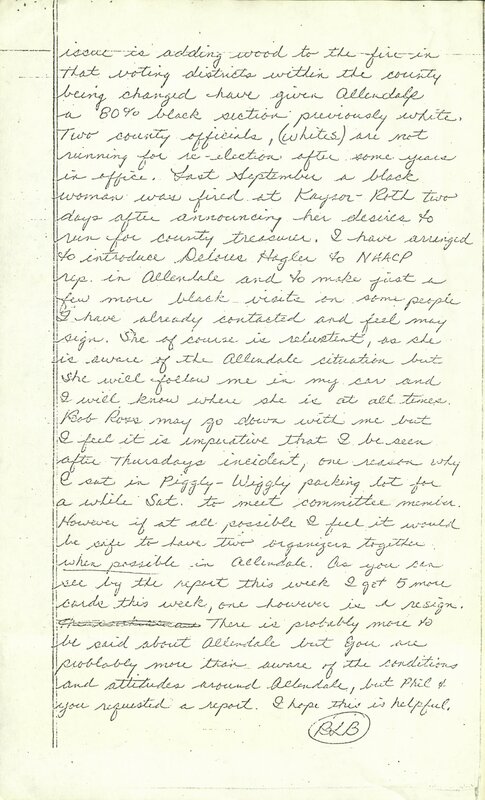 issue is adding wood to the fire in
that voting districts within the county
being changed have given Allendale
a 80% black section previously white.
Two county officials, (whites) are not
running for re-election after some years
in office. Last September a black
woman was fired at Kaysor-Roth two
days after announcing her desires to
run for county treasurer. I have arranged
to introduce Delores Hagler to NAACP
rep. in Allendale and to make just a
few more black visits on some people
I have already contacted and feel may
sign. She of course is reluctent, as she
is aware of the Allendale situation but
she will follow me in my car and
I will know where she is at all times.
Bob Ross may go down with me but
I feel it is imperative that I be seen
after Thursdays incident, one reason why
I sat in Piggly-Wiggly parking lot for
a while Sat. to meet committee member.
However if at all possible I feel it would
be safe to have two organizers together
when possible in Allendale. As you can
see by the report this week I got 5 more
cards this week, one however is a resign.
There is probably more to
be said about Allendale but you are
problably more than aware of the conditions
and attitudes around Allendale, but Phil &
you requested a report. I hope this is helpful.
BLB